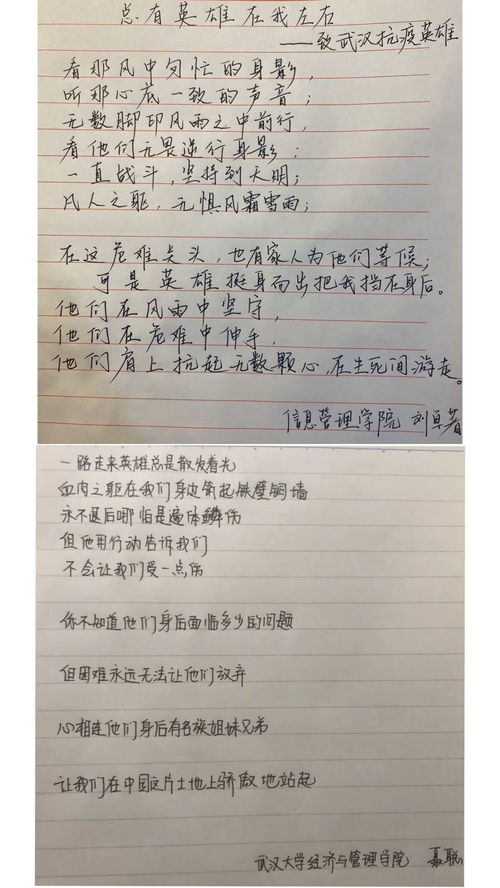 总有英雄在我左右
——致武汉抗疫英雄
看那风中匆忙的身影，
听那心底一致的声音；
无数脚印风雨之中前行，
看他们无畏逆行身影；
一直战斗，坚持到天明；
凡人之躯，无惧风霜雪雨；
在这危难关头，也有家人为他们等候；
可是英雄挺身而出把我挡在身后。
他们在风雨中坚守，
他们在危难中伸手，
他们肩上抗起无数颗心，在生死间游走。
信息管理学院 刘卓著
一路走来英雄总是散发着光
血肉之躯在我们身边筑起铁壁铜墙
永不退后哪怕是遍体鳞伤
但他用行动告诉我们
不会让我们受一点伤
你不知道他们身后面临多少的问题
但困难永远无法让他们放弃
心相连他们身后有各族姐妹兄弟
让我们在中国这片土地上骄傲地站起
武汉大学经济与管理学院 聂聪